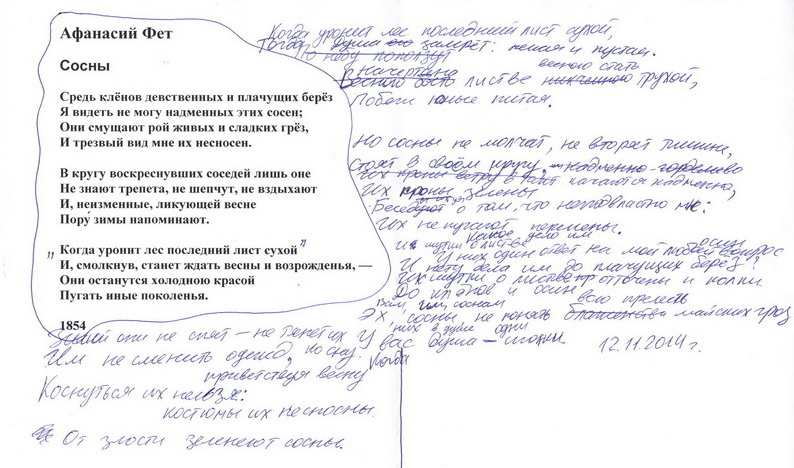 Афанасий Фет
Сосны
Средь клёнов девственных и плачущих берёз
Я видеть не могу надменных этих сосен;
Они смущают рой живых и сладких грёз,
И трезвый вид мне их несносен.
В кругу воскреснувших соседей лишь оне
Не знают трепета, не шепчут, не вздыхают
И, неизменные, ликующей весне
Пору зимы напоминают.
„Когда уронит лес последний лист сухой”
И, смолкнув, станет ждать весны и возрожденья, —
Они останутся холодною красой
Пугать иные поколенья.
1854
Когда уронит лес последний лист сухой,
Тогда душа его замрёт: немая и пустая.
По небу поползут
весною стать
Начертано
Весной было листве никчемною трухой,
Побеги юные питая.
Но сосны не молчат, не вторят тишине,
Стоят в своём кругу, надменно-горделиво
Их кроны в такт качаются надменно,
Их кроны зелены
Беседуют о том, что неподвластно мне:
Их не пугают перемены.
Какое дело им
их шутки о листве осин
У них один ответ на мой любой вопрос
И нету дела им до плачущих берёз?
Их шутки о листве отточены и колки
До клёнов и осин
Вам, им, соснам всю прелесть
Эх, сосны, не понять блаженства майских гроз
них в душе одни
У вас душа — иголки. 12.11.2014 г.
Зимой они не спят — не тянет их
Им не сменить одежд, ко сну.
Когда
приветствуя весну
Коснуться их нельзя:
костюмы их несносны.
От злости зеленеют сосны.